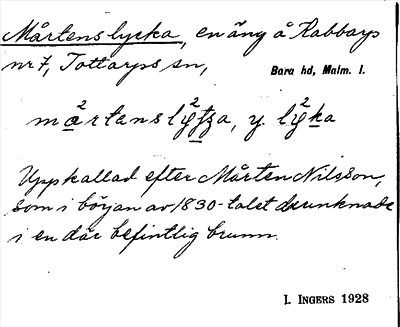 Mårtenslycka, en äng å Rabbarps
nr 7, Tottarps sn,
Bara hd, Malm. l.
mą²rtenslў²ʈʂa, y. lў²ka
Uppkallad efter Mårten Nilsson,
som i början av 1830-talet drunknade
i en där befintlig brunn.
J. INGERS 1928